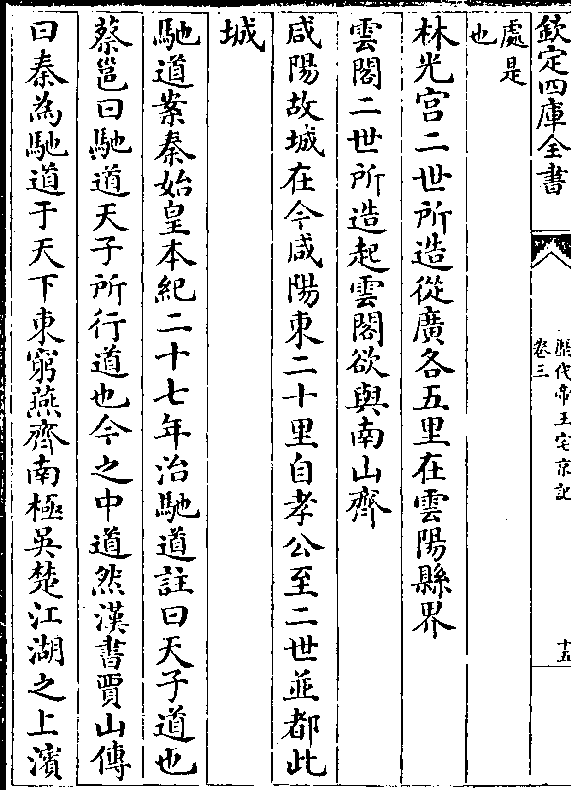 欽定四庫全書
歷代帝王宅京記
卷三
十五
處是
也
林光宫二世所造從廣各五里在雲陽縣界
雲閣二世所造起雲閣欲與南山齊
咸陽故城在今咸陽東二十里自孝公至二世並都此
城
馳道案秦始皇本紀二十七年治馳道註曰天子道也
蔡邕曰馳道天子所行道也今之中道然漢書賈山傳
曰秦為馳道于天下東窮燕齊南極吳楚江湖之上濱